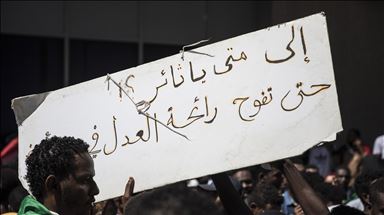 إلى متى يا ثائر؟!
حتى تفوح رائحة العدل في